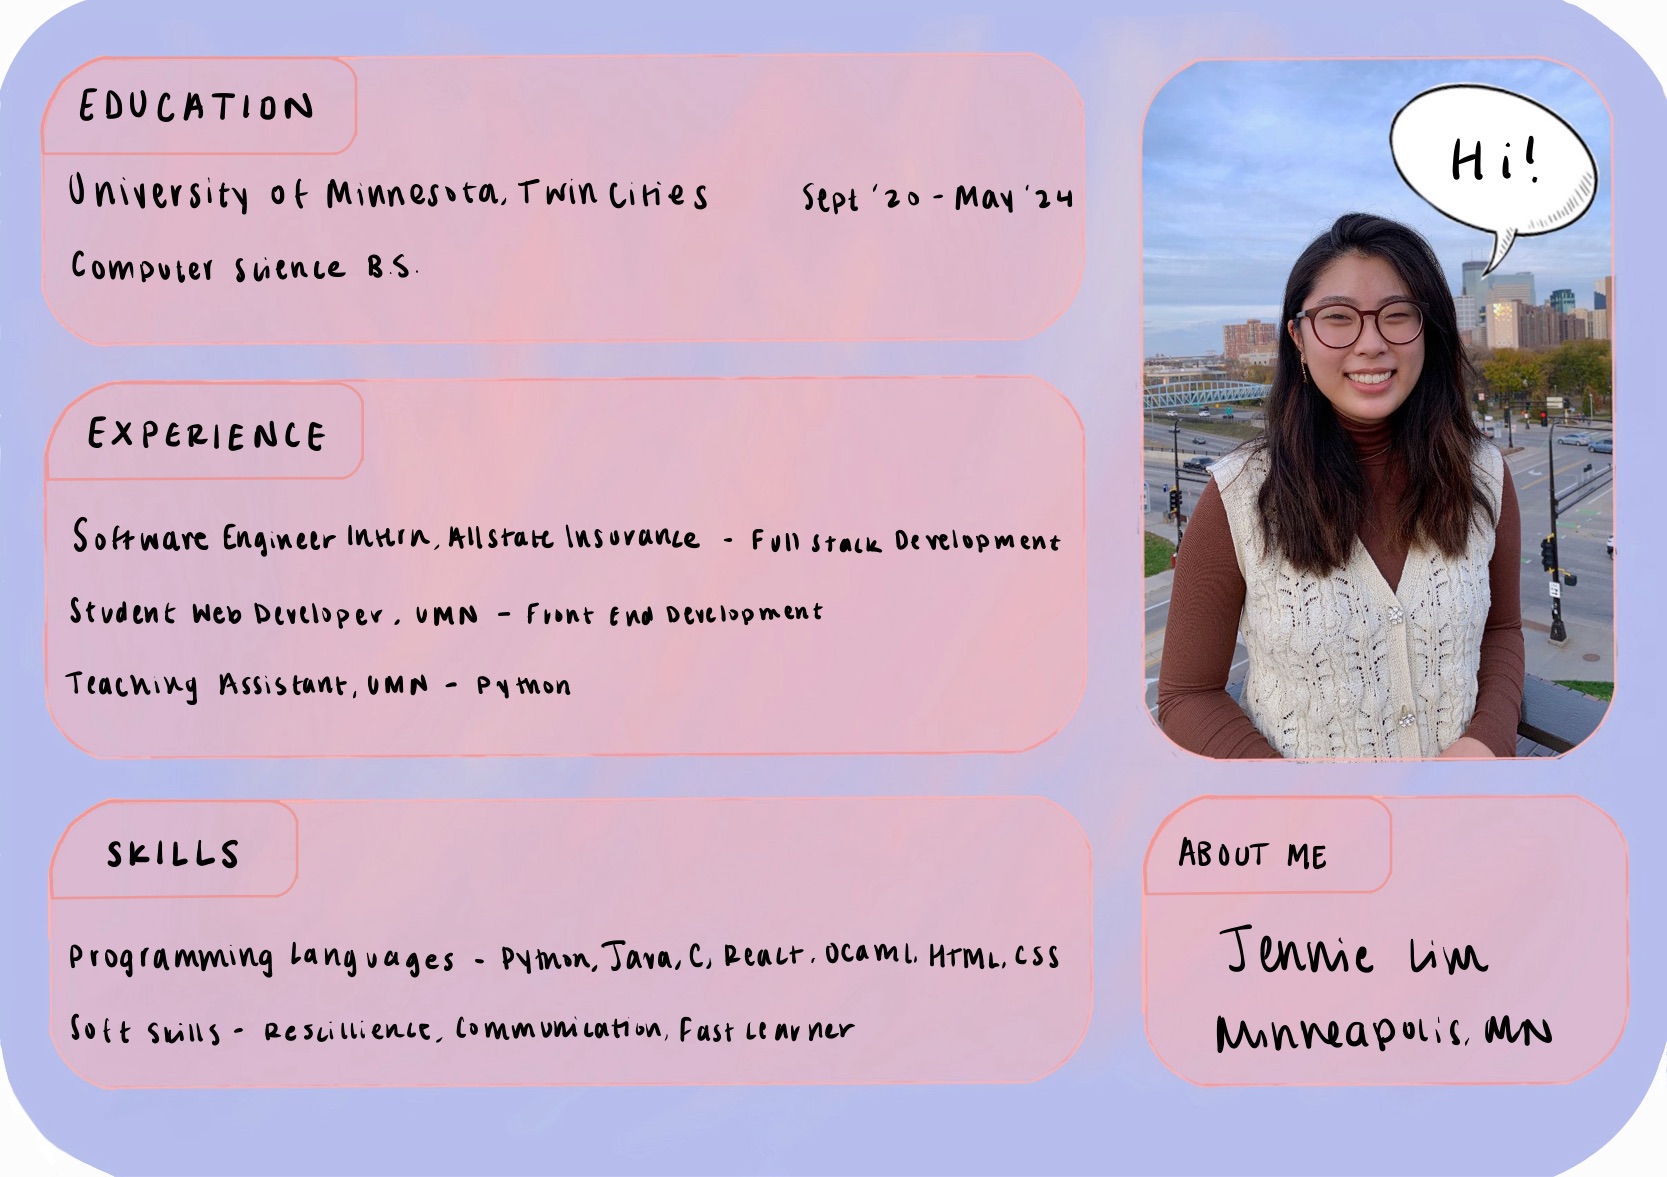 EDUCATION
University of Minnesota, Twin Cities Sept '20 - May '24
Computer Science B.S.
EXPERIENCE
Software Engineer Intern, Allstate Insurance - Full Stack Development
Student Web Developer, UMN - Front End Development
Teaching Assistant, UMN - Python
SKILLS
Programming Languages - Python, Java, C, React, OCaml, HTML, CSS
Soft Skills - Rescillience, Communication, Fast Learner
Hi!
ABOUT ME
Jennie Lim
Minneapolis, MN